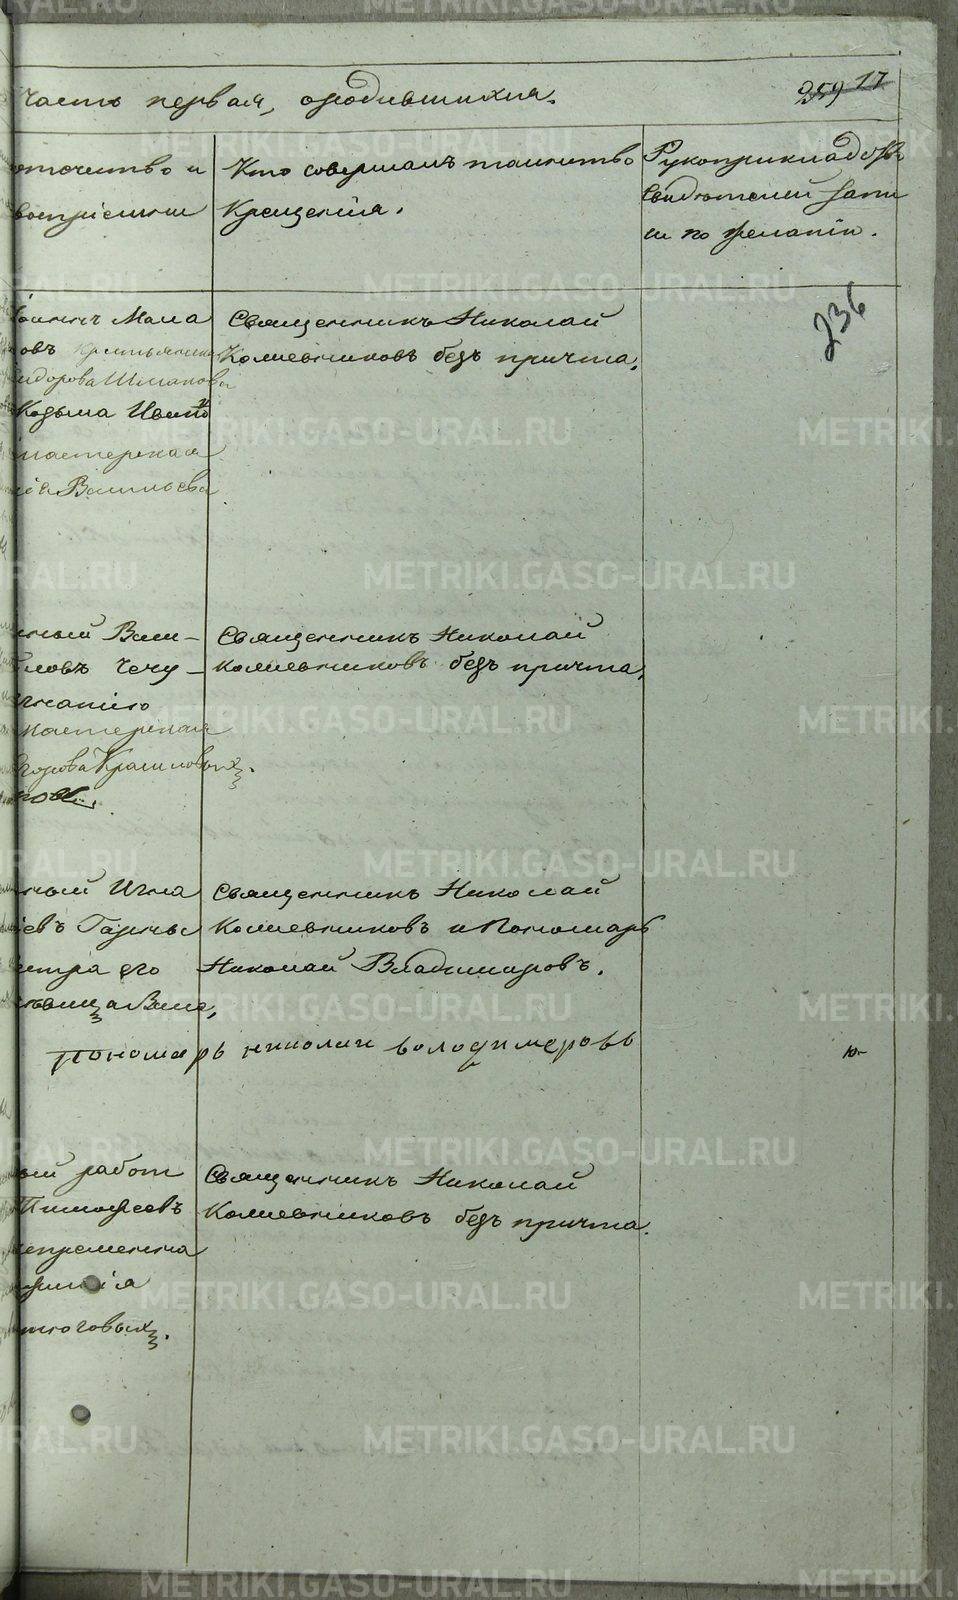 Часть первая, ородившихся.
259 17
отчество и
воспріемни
Кто совершалъ таинство
Крещенія.
Рукоприкладство
свидѣтелей запи
си по желанію.
236
Мала
овъ крестьянина
идорова Шмакова
Козьма Ивано
мастерская
Васильева
Священникъ Николай
Колмевниковъ безъ причта.
нный Васи-
ловъ Чечу-
мастерская
горова Красиловыхъ.
Священникъ Николай
Колмевниковъ безъ причта.
ный Игна
іевъ
естра его
Священникъ Николай
Колмевниковъ и Пономарь
Николай Владимировъ.
пономарь николаи володимеровъ
ый работ
Тимофеевъ
непременна
Священникъ Николай
Колмевниковъ безъ причта.
METRIKI.GASO-URAL.RU